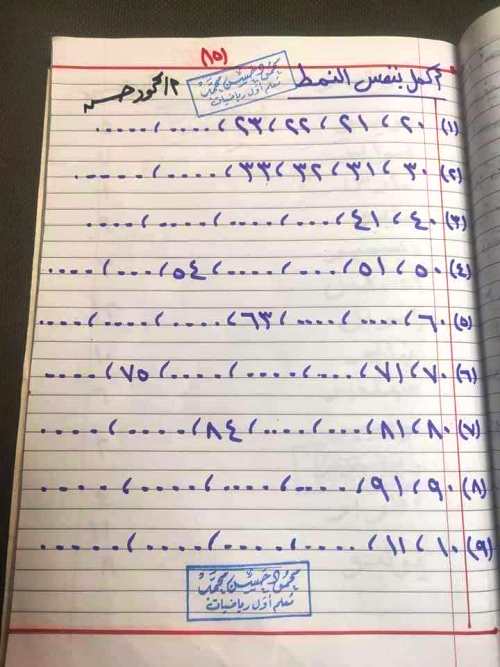 (١٥)
أكمل بنفس النمط
محمود حسين محمد
معلم أول رياضيات
محمود
(١) ٢٠، ٢١، ٢٢، ٢٣، ....، .....
(٢) ٣٠، ٣١، ٣٢، ٣٣، ....، .....
(٣) ٤٠، ٤١، ....، ....، ....، .....
(٤) ٥٠، ٥١، ....، ....، ٥٤، ....، ....
(٥) ٦٠، ....، ....، ٦٣، ....، ....، ....
(٦) ٧٠، ٧١، ....، ....، ....، ٧٥، ....
(٧) ٨٠، ٨١، ....، ....، ٨٤، ....، ....
(٨) ٩٠، ٩١، ....، ....، ....، ....
(٩) ١٠، ١١، ....، ....، ....، ....
محمود حسين محمد
معلم أول رياضيات